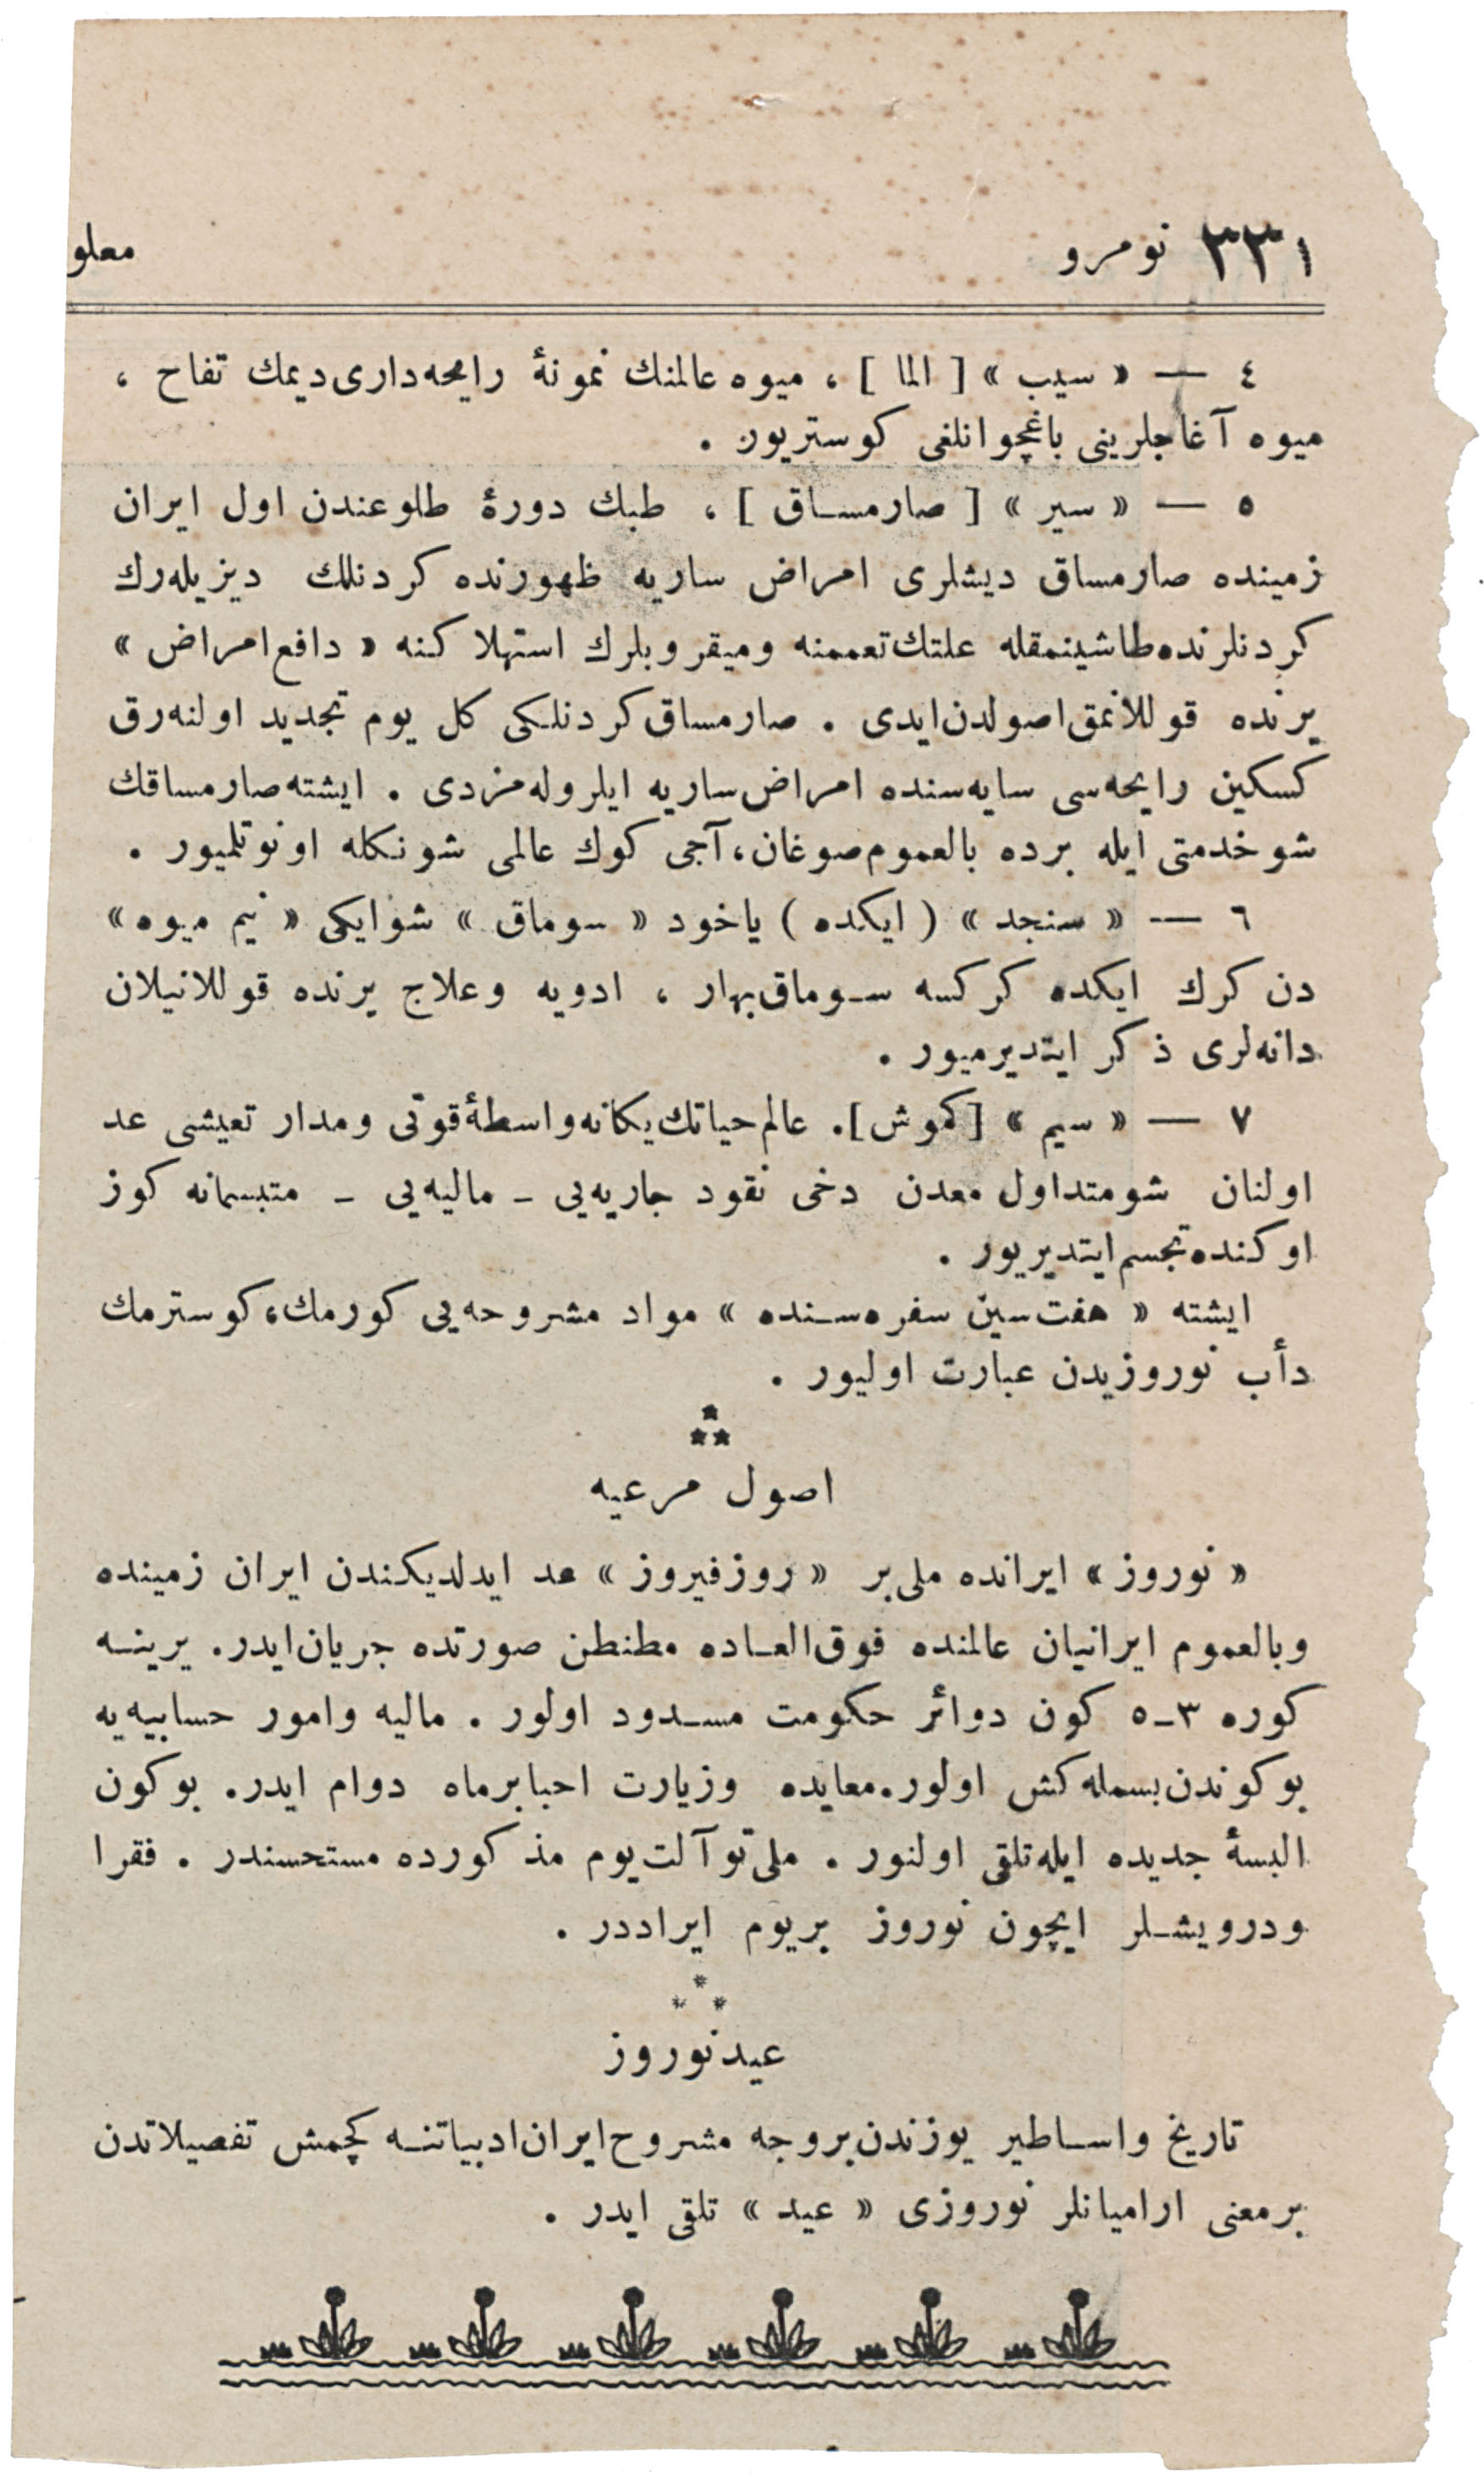 ٣٣١ نومرو
معلو
٤ — « سيب » [ الما ] ، ميوه عالمنك نمونهٔ رايحه‌دارى ديمك تفاح ،
ميوه آغاجلرينى باغچوانلغى كوستريور .
٥ — « سير » [ صارمساق ] ، طبك دورهٔ طلوعندن اول ايران
زمينده صارمساق ديشلرى امراض ساريه ظهورنده كردنلك ديزيله‌رك
كردنلرنده طاشينمقله علتك تعممنه وميقروبلرك استهلاكنه « دافع امراض »
يرنده قوللانمق اصولدن ايدى . صارمساق كردنلكى كل يوم تجديد اولنه‌رق
كسكين رايحه‌سى سايه‌سنده امراض ساريه ايلروله‌مزدى . ايشته صارمساقك
شو خدمتى ايله برده بالعموم صوغان، آجى كوك عالمى شونكله اونوتلميور .
٦ — « سنجد » ( ايكده ) ياخود « سوماق » شو ايكى « نيم ميوه »
دن كرك ايكده كركسه سوماق بهار ، ادويه وعلاج يرنده قوللانيلان
دانه‌لرى ذكر ايتديرميور .
٧ — « سيم » [كموش]. عالم حياتك يكانه واسطهٔ قوتى ومدار تعيشى عد
اولنان شو متداول معدن دخى نقود جاريه‌يى - ماليه‌يى - متبسمانه كوز
اوكنده تجسم ايتديريور .
ايشته « هفت سين سفره‌سنده » مواد مشروحه‌يى كورمك، كوسترمك
دأب نوروزيدن عبارت اوليور .
اصول مرعيه
« نوروز » ايرانده ملى بر « روز فيروز » عد ايدلديكندن ايران زمينده
وبالعموم ايرانيان عالمنده فوق العاده مطنطن صورتده جريان ايدر. يرينه
كوره ٣-٥ كون دوائر حكومت مسدود اولور . ماليه وامور حسابيه‌يه
بو كوندن بسمله‌كش اولور. معايده وزيارت احبا بر ماه دوام ايدر. بو كون
البسهٔ جديده ايله تلقى اولنور . ملى توآلت يوم مذكورده مستحسندر . فقرا
ودرويشلر ايچون نوروز بر يوم ايراددر .
عيد نوروز
تاريخ واساطير يوزندن بر وجه مشروح ايران ادبياتنه كچمش تفصيلاتدن
بر معنى اراميانلر نوروزى « عيد » تلقى ايدر .